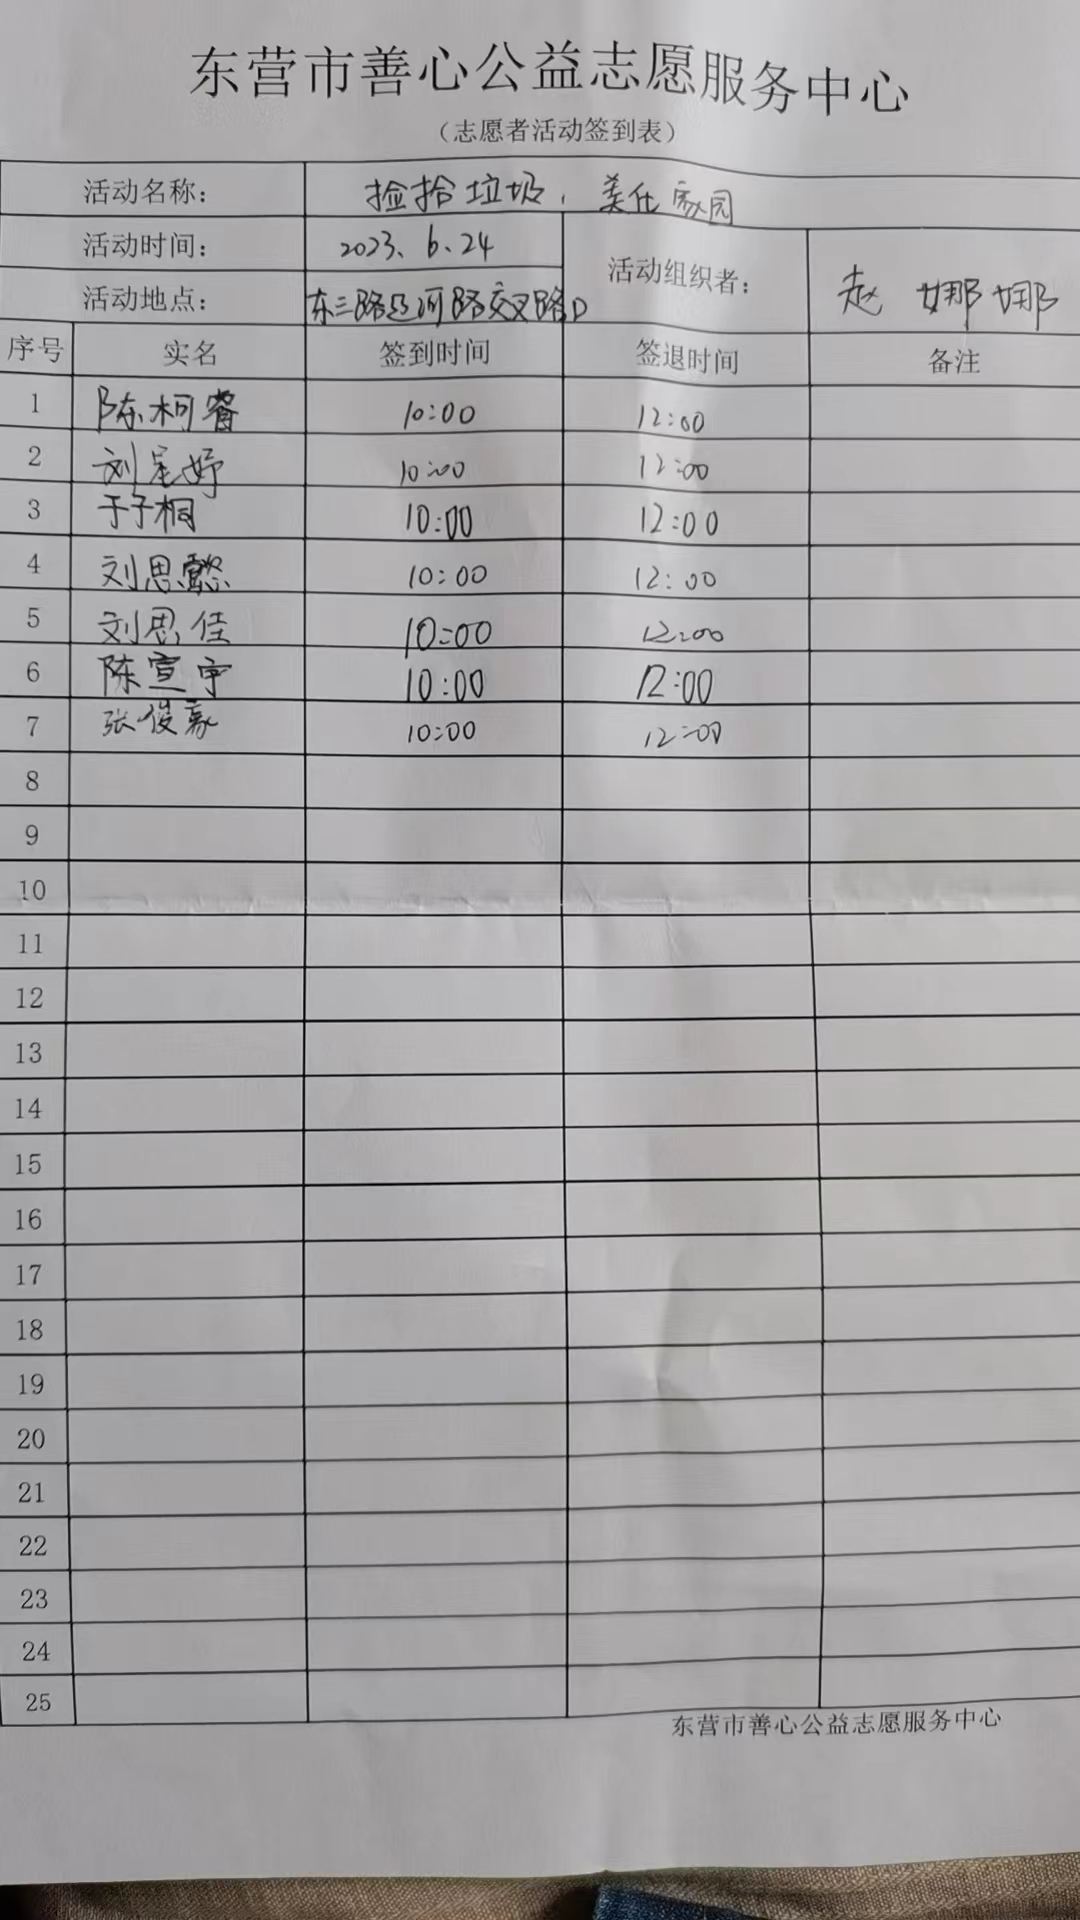 东营市善心公益志愿服务中心
（志愿者活动签到表）
活动名称： 捡拾垃圾，美化家园
活动时间： 2023、6、24 活动组织者： 赵娜娜
活动地点： 东三路辽河路交叉路口
序号 实名 签到时间 签退时间 备注
1 陈柯睿 10:00 12:00
2 刘星妤 10:00 12:00
3 于子桐 10:00 12:00
4 刘思懿 10:00 12:00
5 刘思佳 10:00 12:00
6 陈宣宇 10:00 12:00
7 张俊豪 10:00 12:00
8
9
10
11
12
13
14
15
16
17
18
19
20
21
22
23
24
25
东营市善心公益志愿服务中心